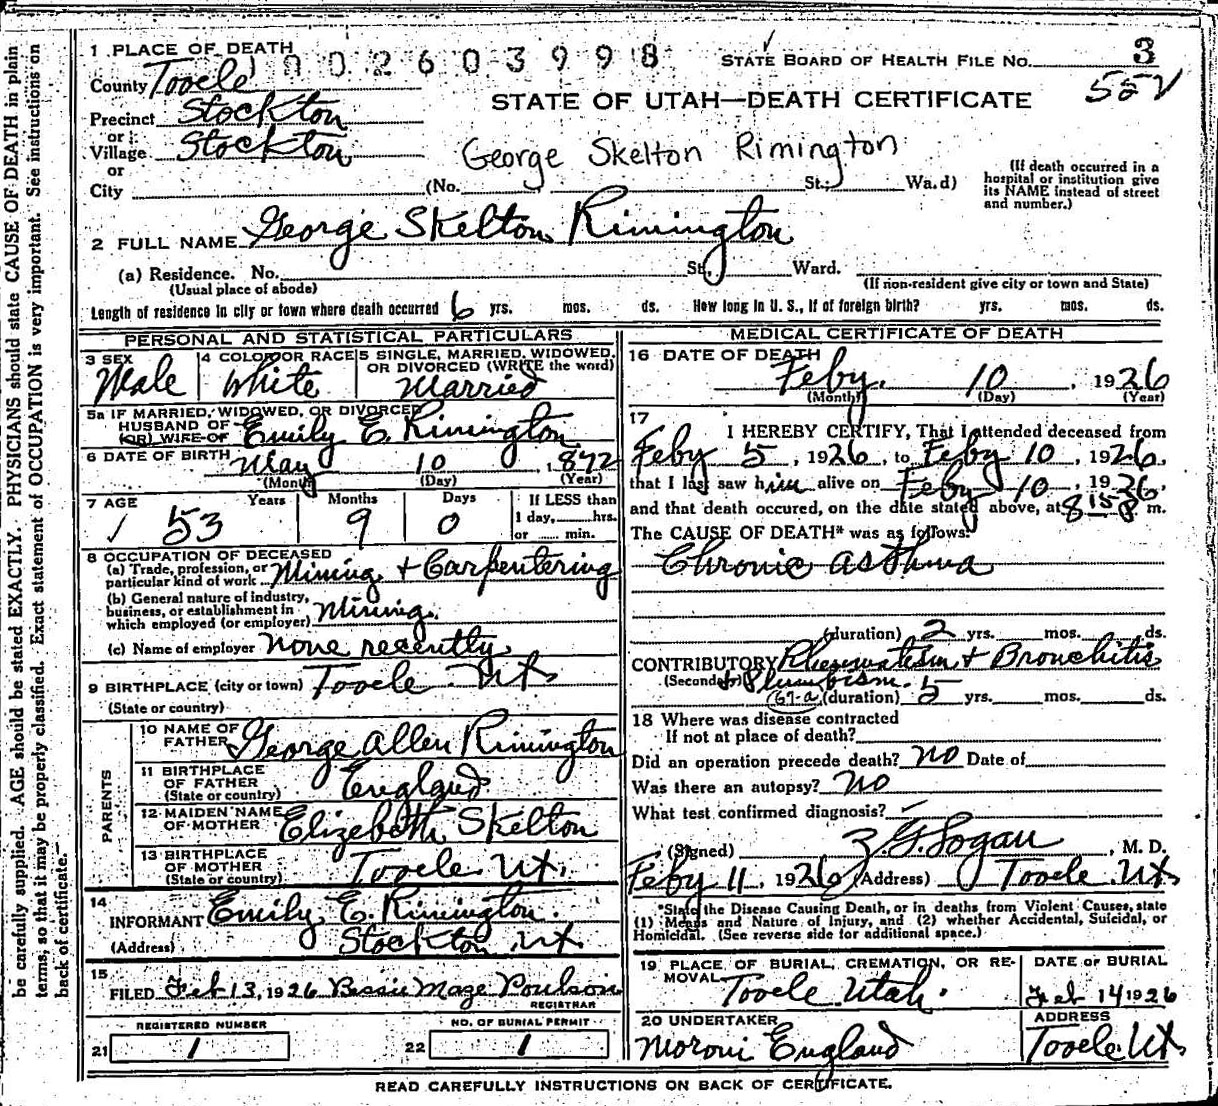 1 PLACE OF DEATH
1002603998
STATE BOARD OF HEALTH FILE NO. 3
County Tooele
552
STATE OF UTAH—DEATH CERTIFICATE
Precinct Stockton
or
Village Stockton
George Skelton Rimington
or
City (No. St., Wa.d)
(If death occurred in a hospital or institution give its NAME instead of street and number.)
2 FULL NAME George Skelton Rimington
(a) Residence. No. St., Ward.
(Usual place of abode) (If non-resident give city or town and State)
Length of residence in city or town where death occurred 6 yrs. mos. ds. How long in U. S., if of foreign birth? yrs. mos. ds.
PERSONAL AND STATISTICAL PARTICULARS
3 SEX Male
4 COLOR OR RACE White
5 SINGLE, MARRIED, WIDOWED, OR DIVORCED (WRITE the word) Married
5a IF MARRIED, WIDOWED, OR DIVORCED
HUSBAND OF
(OR) WIFE OF Emily E. Rimington
6 DATE OF BIRTH May 10, 1872
(Month) (Day) (Year)
7 AGE Years Months Days If LESS than
1 day, hrs.
53 9 0 or min.
8 OCCUPATION OF DECEASED
(a) Trade, profession, or
particular kind of work Mining + Carpentering
(b) General nature of industry,
business, or establishment in
which employed (or employer) Mining.
(c) Name of employer None recently
9 BIRTHPLACE (city or town) Tooele Ut
(State or country)
PARENTS
10 NAME OF
FATHER George Allen Rimington
11 BIRTHPLACE
OF FATHER England
(State or country)
12 MAIDEN NAME
OF MOTHER Elizabeth Skelton
13 BIRTHPLACE
OF MOTHER Tooele Ut.
(State or country)
14
INFORMANT Emily E. Rimington.
(Address) Stockton Ut
15
FILED Feb 13, 1926 Bessie Maze Poulson
REGISTRAR
REGISTERED NUMBER
21 1
NO. OF BURIAL PERMIT
22 1
MEDICAL CERTIFICATE OF DEATH
16 DATE OF DEATH
Feby. 10, 1926
(Month) (Day) (Year)
17
I HEREBY CERTIFY, That I attended deceased from
Feby 5, 1926, to Feby 10, 1926,
that I last saw him alive on Feby 10, 1926,
and that death occured, on the date stated above, at 8 15 P m.
The CAUSE OF DEATH* was as follows:
Chronic asthma
(duration) 2 yrs. mos. ds.
CONTRIBUTORY Rheumatism + Bronchitis
(Secondary) + Plumbism.
(67-a) (duration) 5 yrs. mos. ds.
18 Where was disease contracted
If not at place of death?
Did an operation precede death? no Date of
Was there an autopsy? No
What test confirmed diagnosis?
(Signed) Logan, M. D.
Feby 11, 1926 (Address) Tooele Ut
*State the Disease Causing Death, or in deaths from Violent Causes, state
(1) Means and Nature of Injury, and (2) whether Accidental, Suicidal, or
Homicidal. (See reverse side for additional space.)
19 PLACE OF BURIAL, CREMATION, OR RE-
MOVAL Tooele Utah.
DATE OF BURIAL
Feb 14 1926
20 UNDERTAKER
Moroni England
ADDRESS
Tooele. Ut
READ CAREFULLY INSTRUCTIONS ON BACK OF CERTIFICATE.
be carefully supplied. AGE should be stated EXACTLY. PHYSICIANS should state CAUSE OF DEATH in plain
terms, so that it may be properly classified. Exact statement of OCCUPATION is very important. See instructions on
back of certificate.